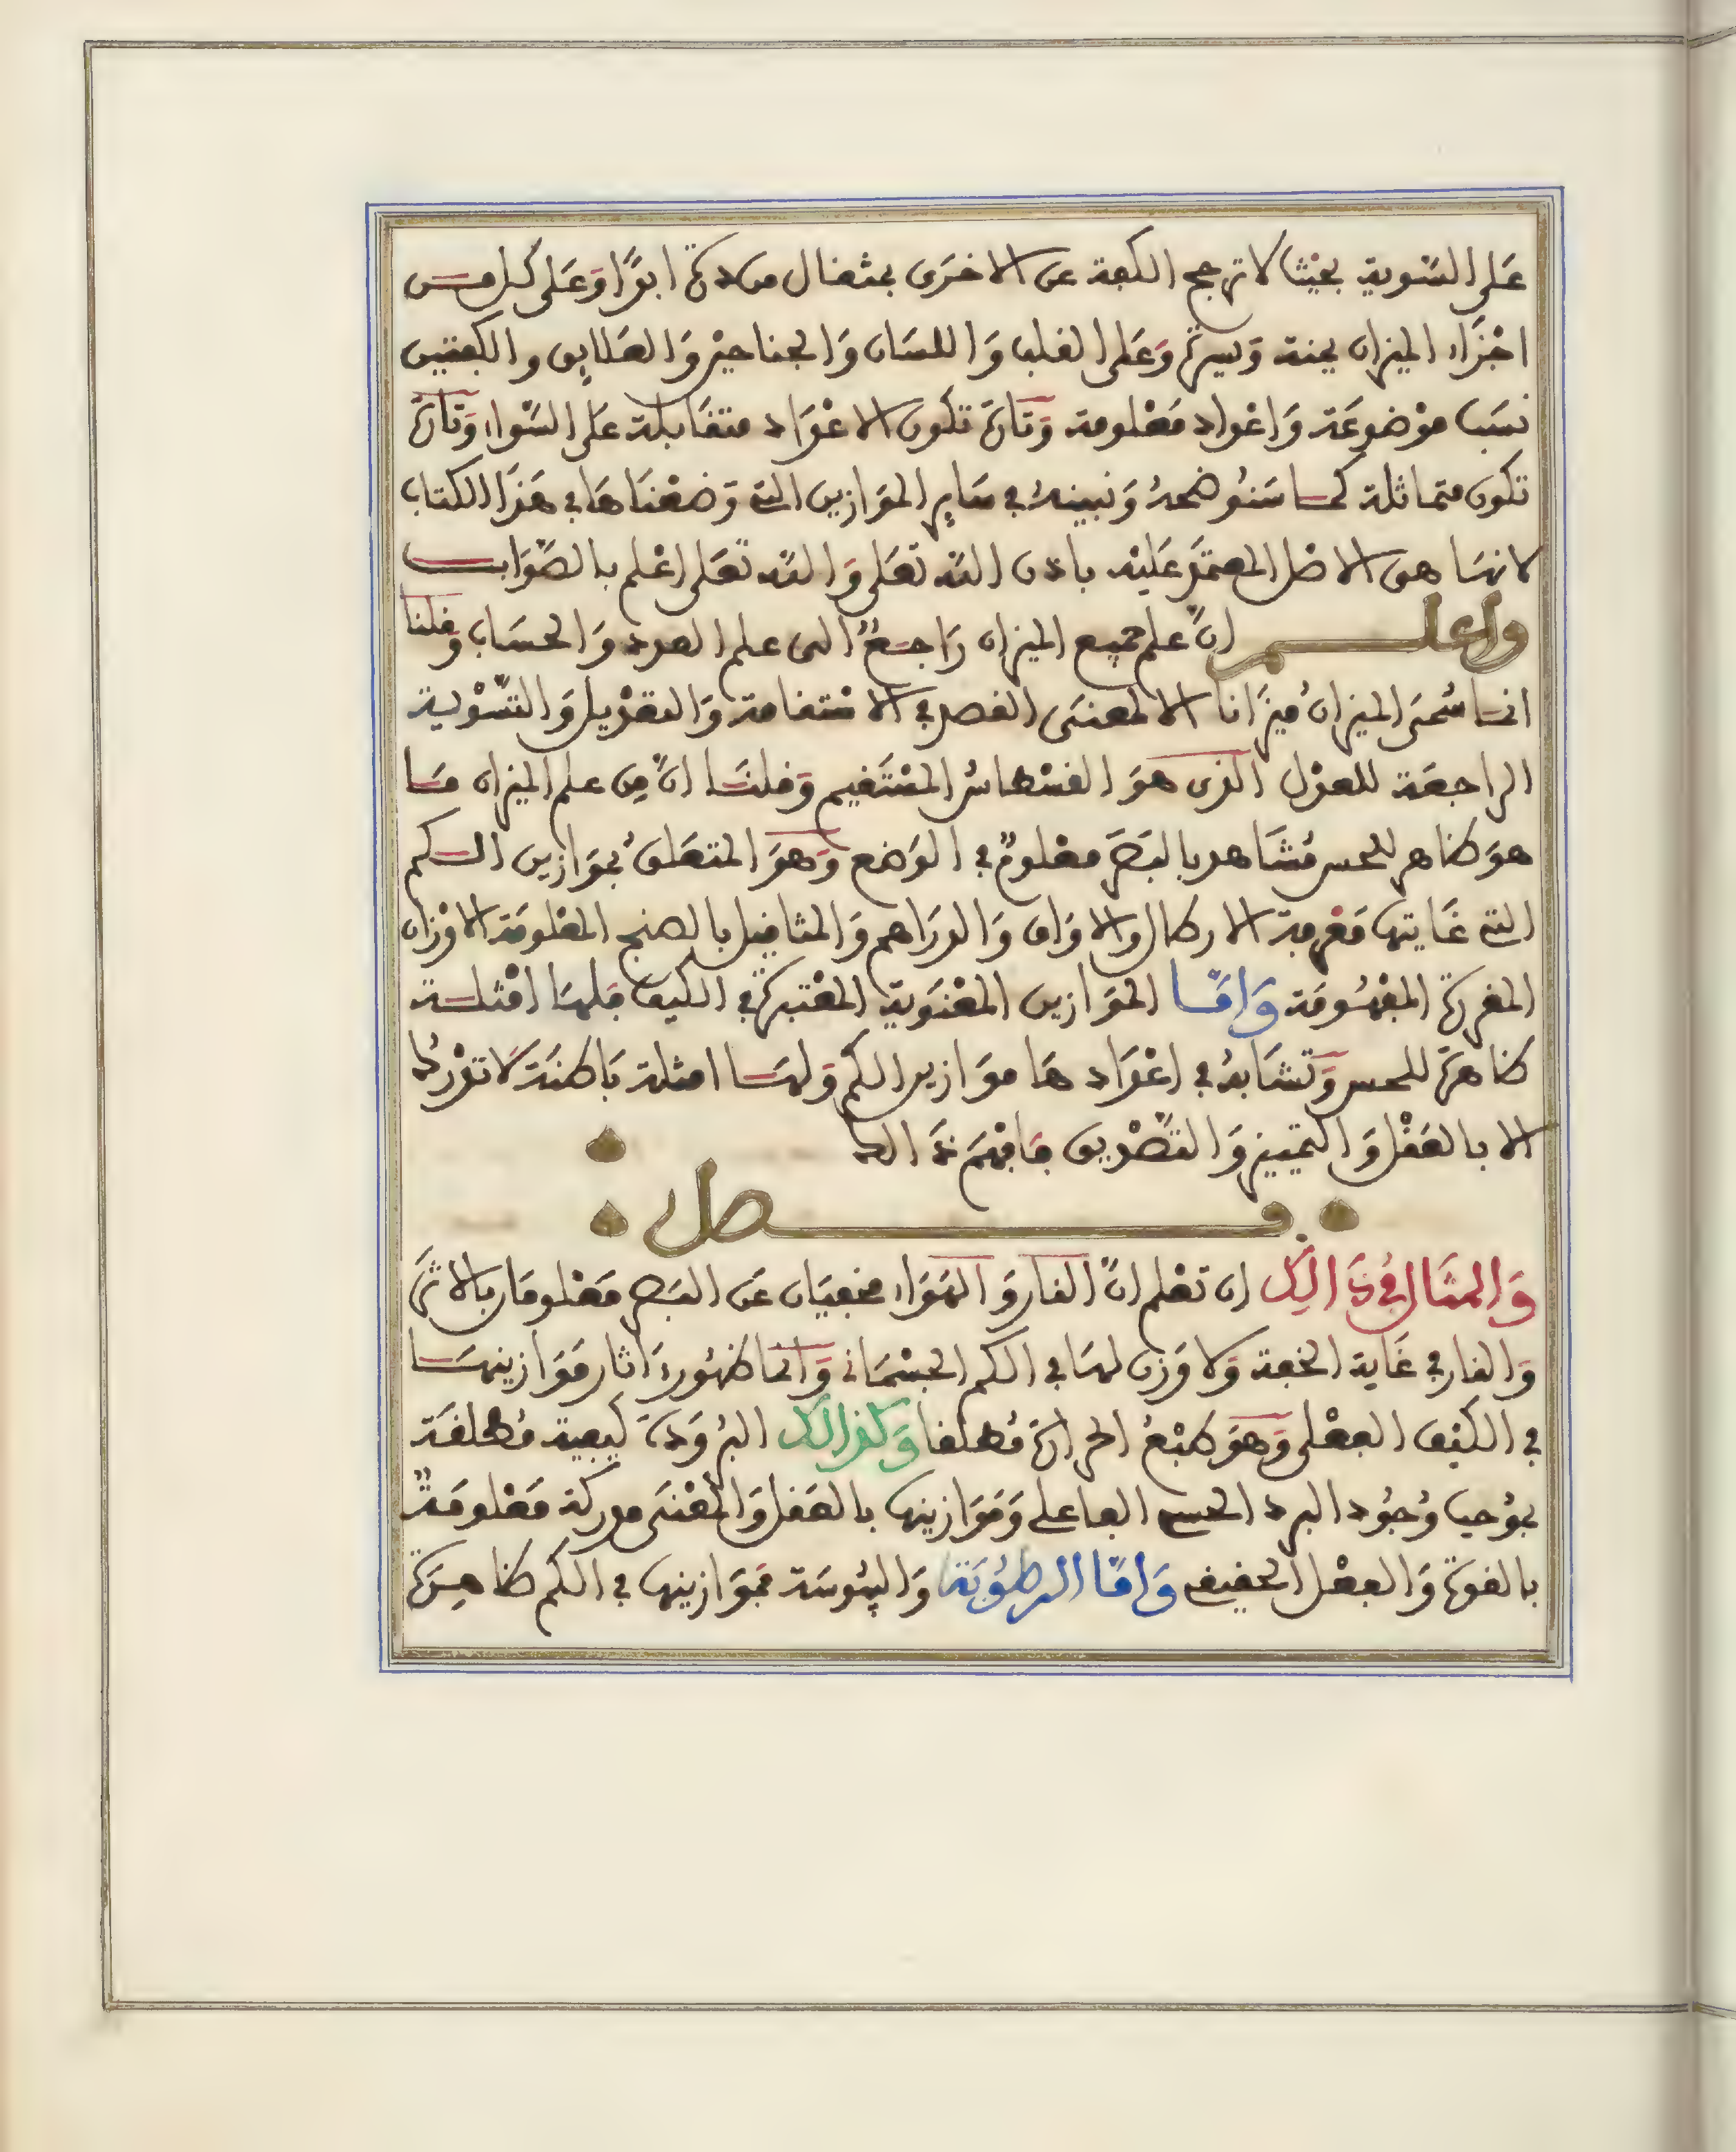 على التسوية بحيث لا ترجح الكفة عن الاخرى بمثقال من ذرة ابدًا وعلى كل من
اجزاء الميزان يمنة ويسرة وعلى القلب واللسان والجناحين والعلايق والكفتين
نسب موضوعة واعداد معلومة وتارة تكون الاعداد متقابلة على السواء وتارة
تكون متماثلة كما سنوضحه ونبينه في ساير الموازين التي وضعناها في هذا الكتاب
لانها هي الاصل المعتمد عليه باذن الله تعلى والله تعلى اعلم بالصواب
واعلم انّ علم جميع الميزان راجعٌ الى علم العدد والحساب وقلنا
انما سُمي الميزانُ ميزانا الا لمعنى القصد في الاستقامة والتعديل والتسوية
الراجعة للعدل الذي هو القسطاس المستقيم وقلنا انّ من علم الميزان ما
هو ظاهر للحس مُشاهد بالبصر معلومٌ في الوضع وهو المتعلق بموازين الكم
التي غايتها معرفة الارطال والاواق والدراهم والمثاقيل بالصنج المعلومة الاوزان
المحررة المفهومة وامّا الموازين المعنوية المعتبرة في الكيف فلها امثلة
ظاهرة للحس وتشابهُ في اعداد ها موازين الكم ولها امثلة باطنة لا تدرك
الا بالعقل والتمييز والتصديق فافهم ذالك
فصل
والمثال في ذالك ان تعلم انّ النار والهواء مخفيان عن البصر معلومان بالاثر
والنار في غاية الخفة ولا وزن لها في الكم الجسماني وانما ظهور اثار موازينها
في الكيف الفعلي وهو طبعُ الحرارة مُطلقا وكذالك البرودة كيفية مُطلقة
بموجب وُجود البرد الحسي الفاعلي وموازينها بالعقل والمعنى مدركة معلومةٌ
بالقوة والفعل الخفيف وامّا الرطوبة واليبوسة فموازينها في الكم ظاهرة